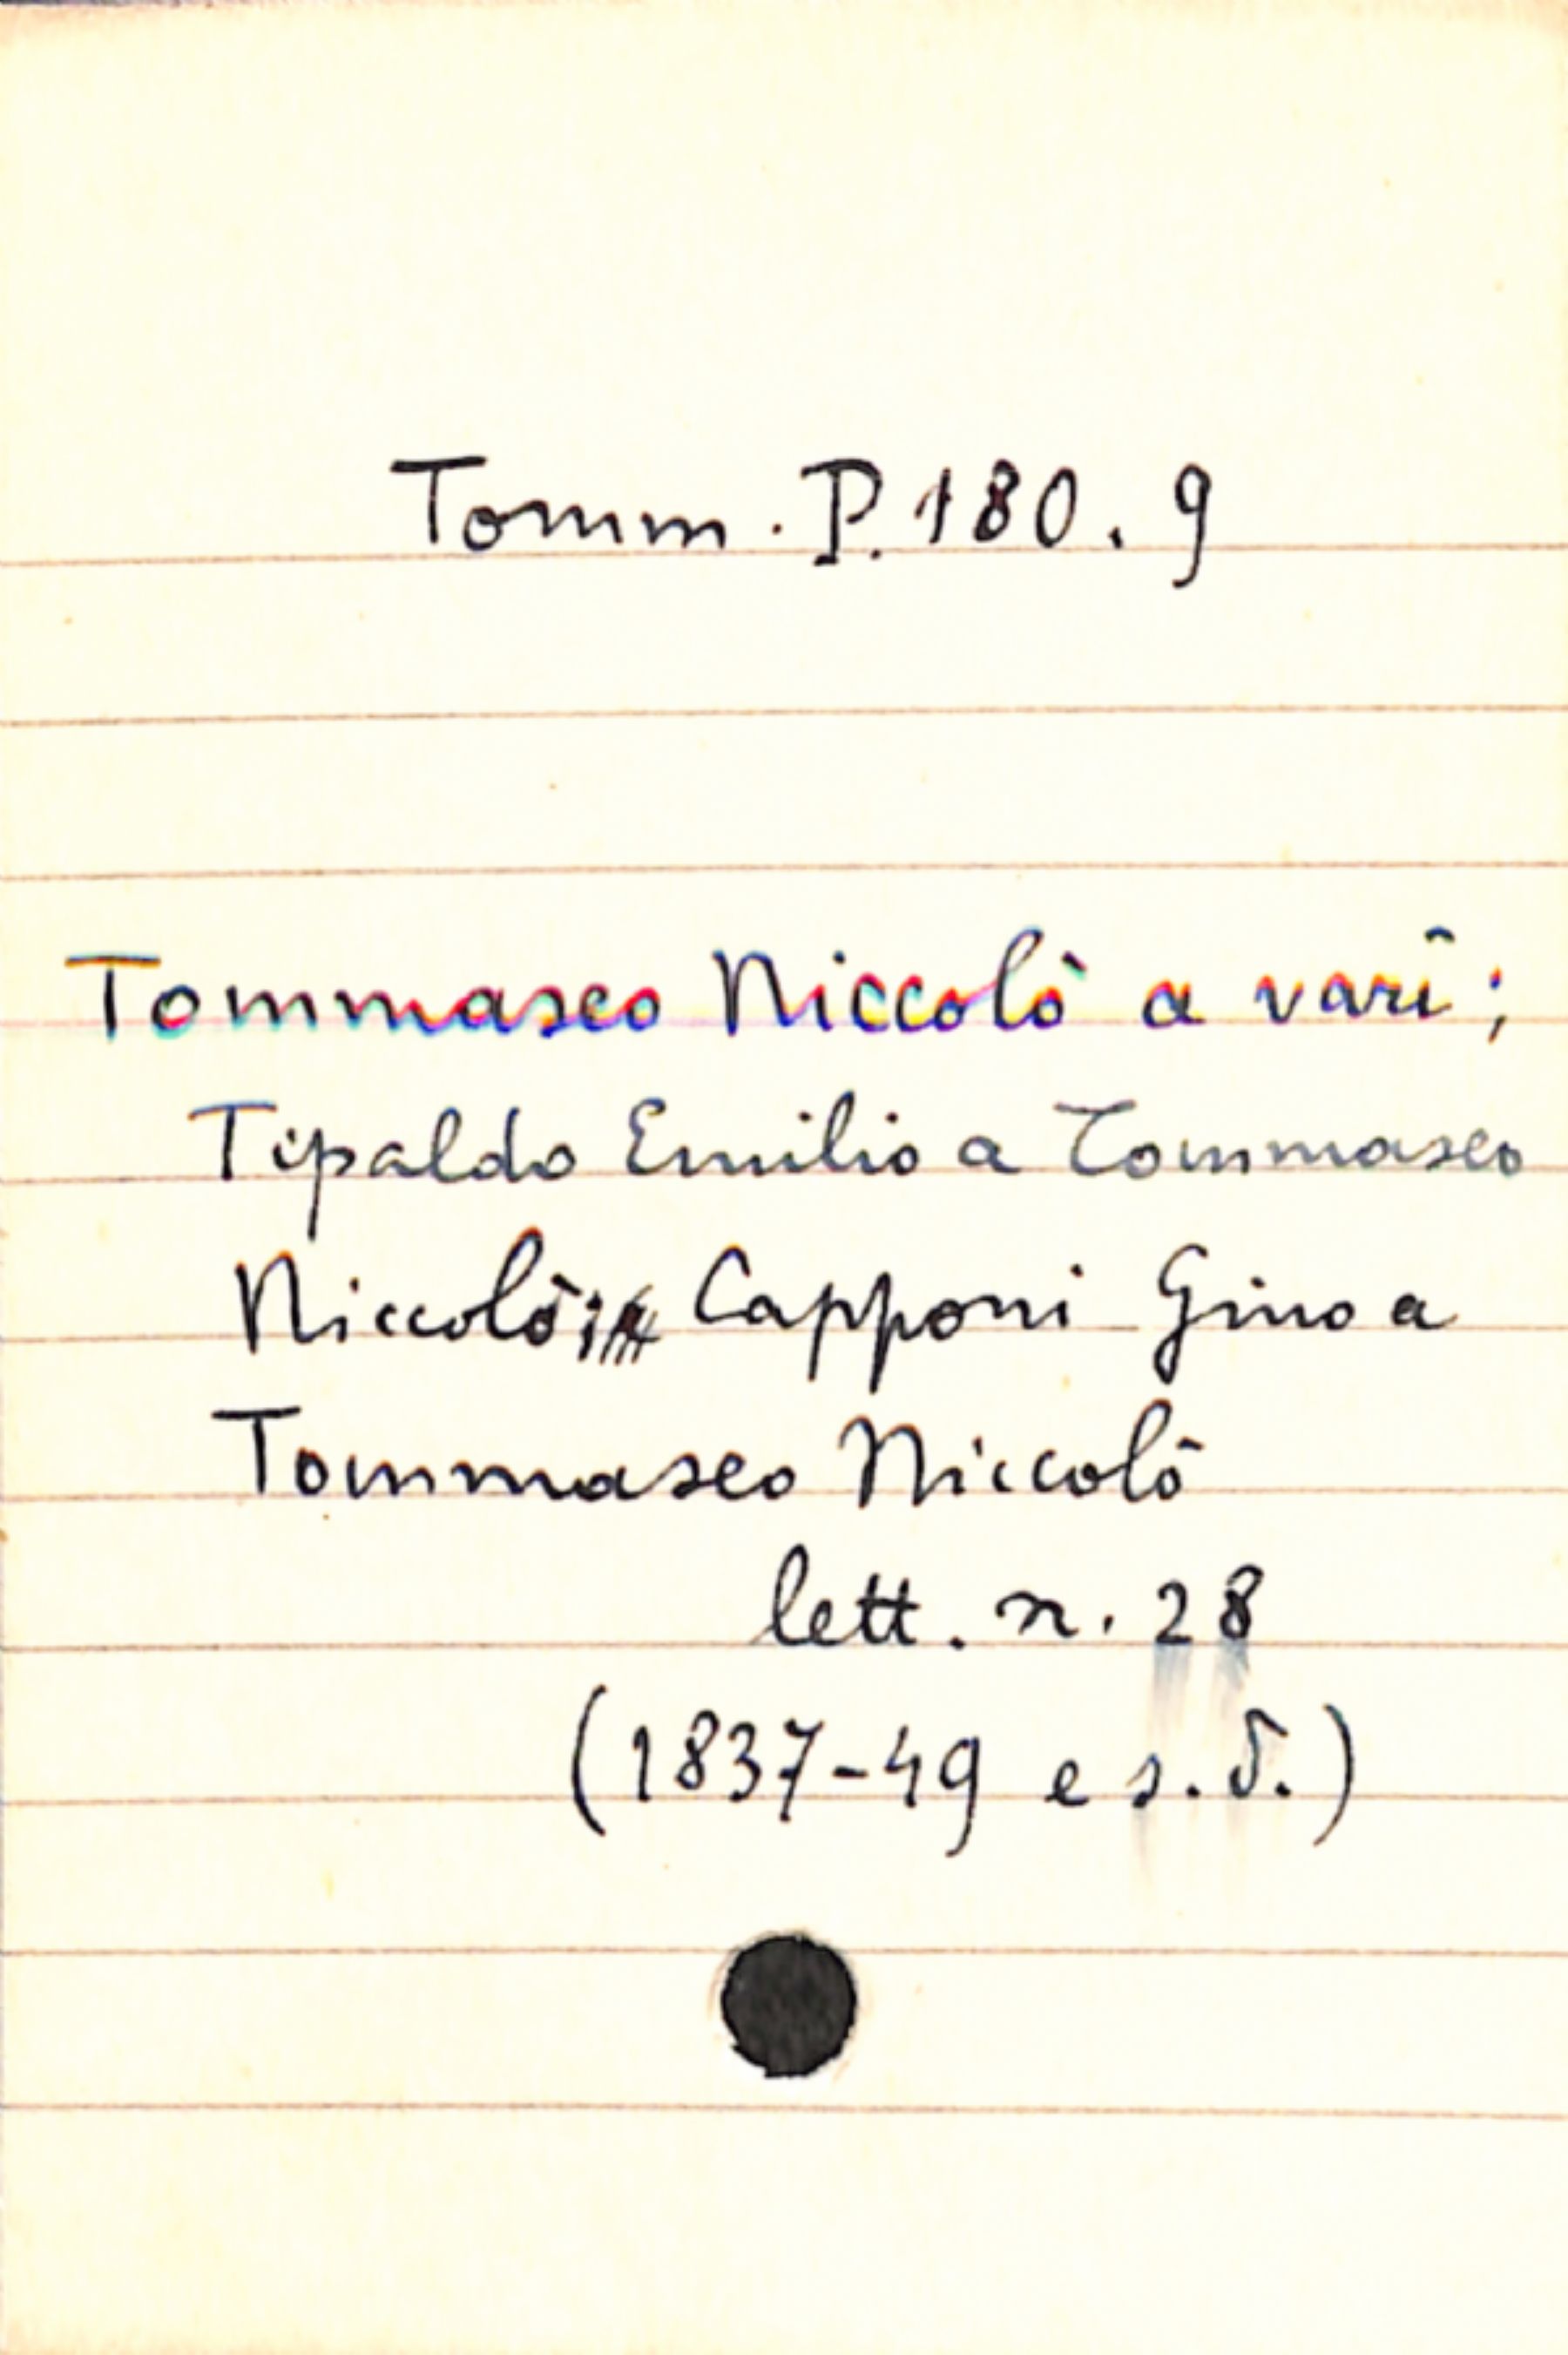 Tomm. P. 180. 9
Tommaseo Niccolò a varî;
Tipaldo Emilio a Tommaseo
Niccolò; Capponi Gino a
Tommaseo Niccolò
lett. n. 28
(1837-49 e s.d.)